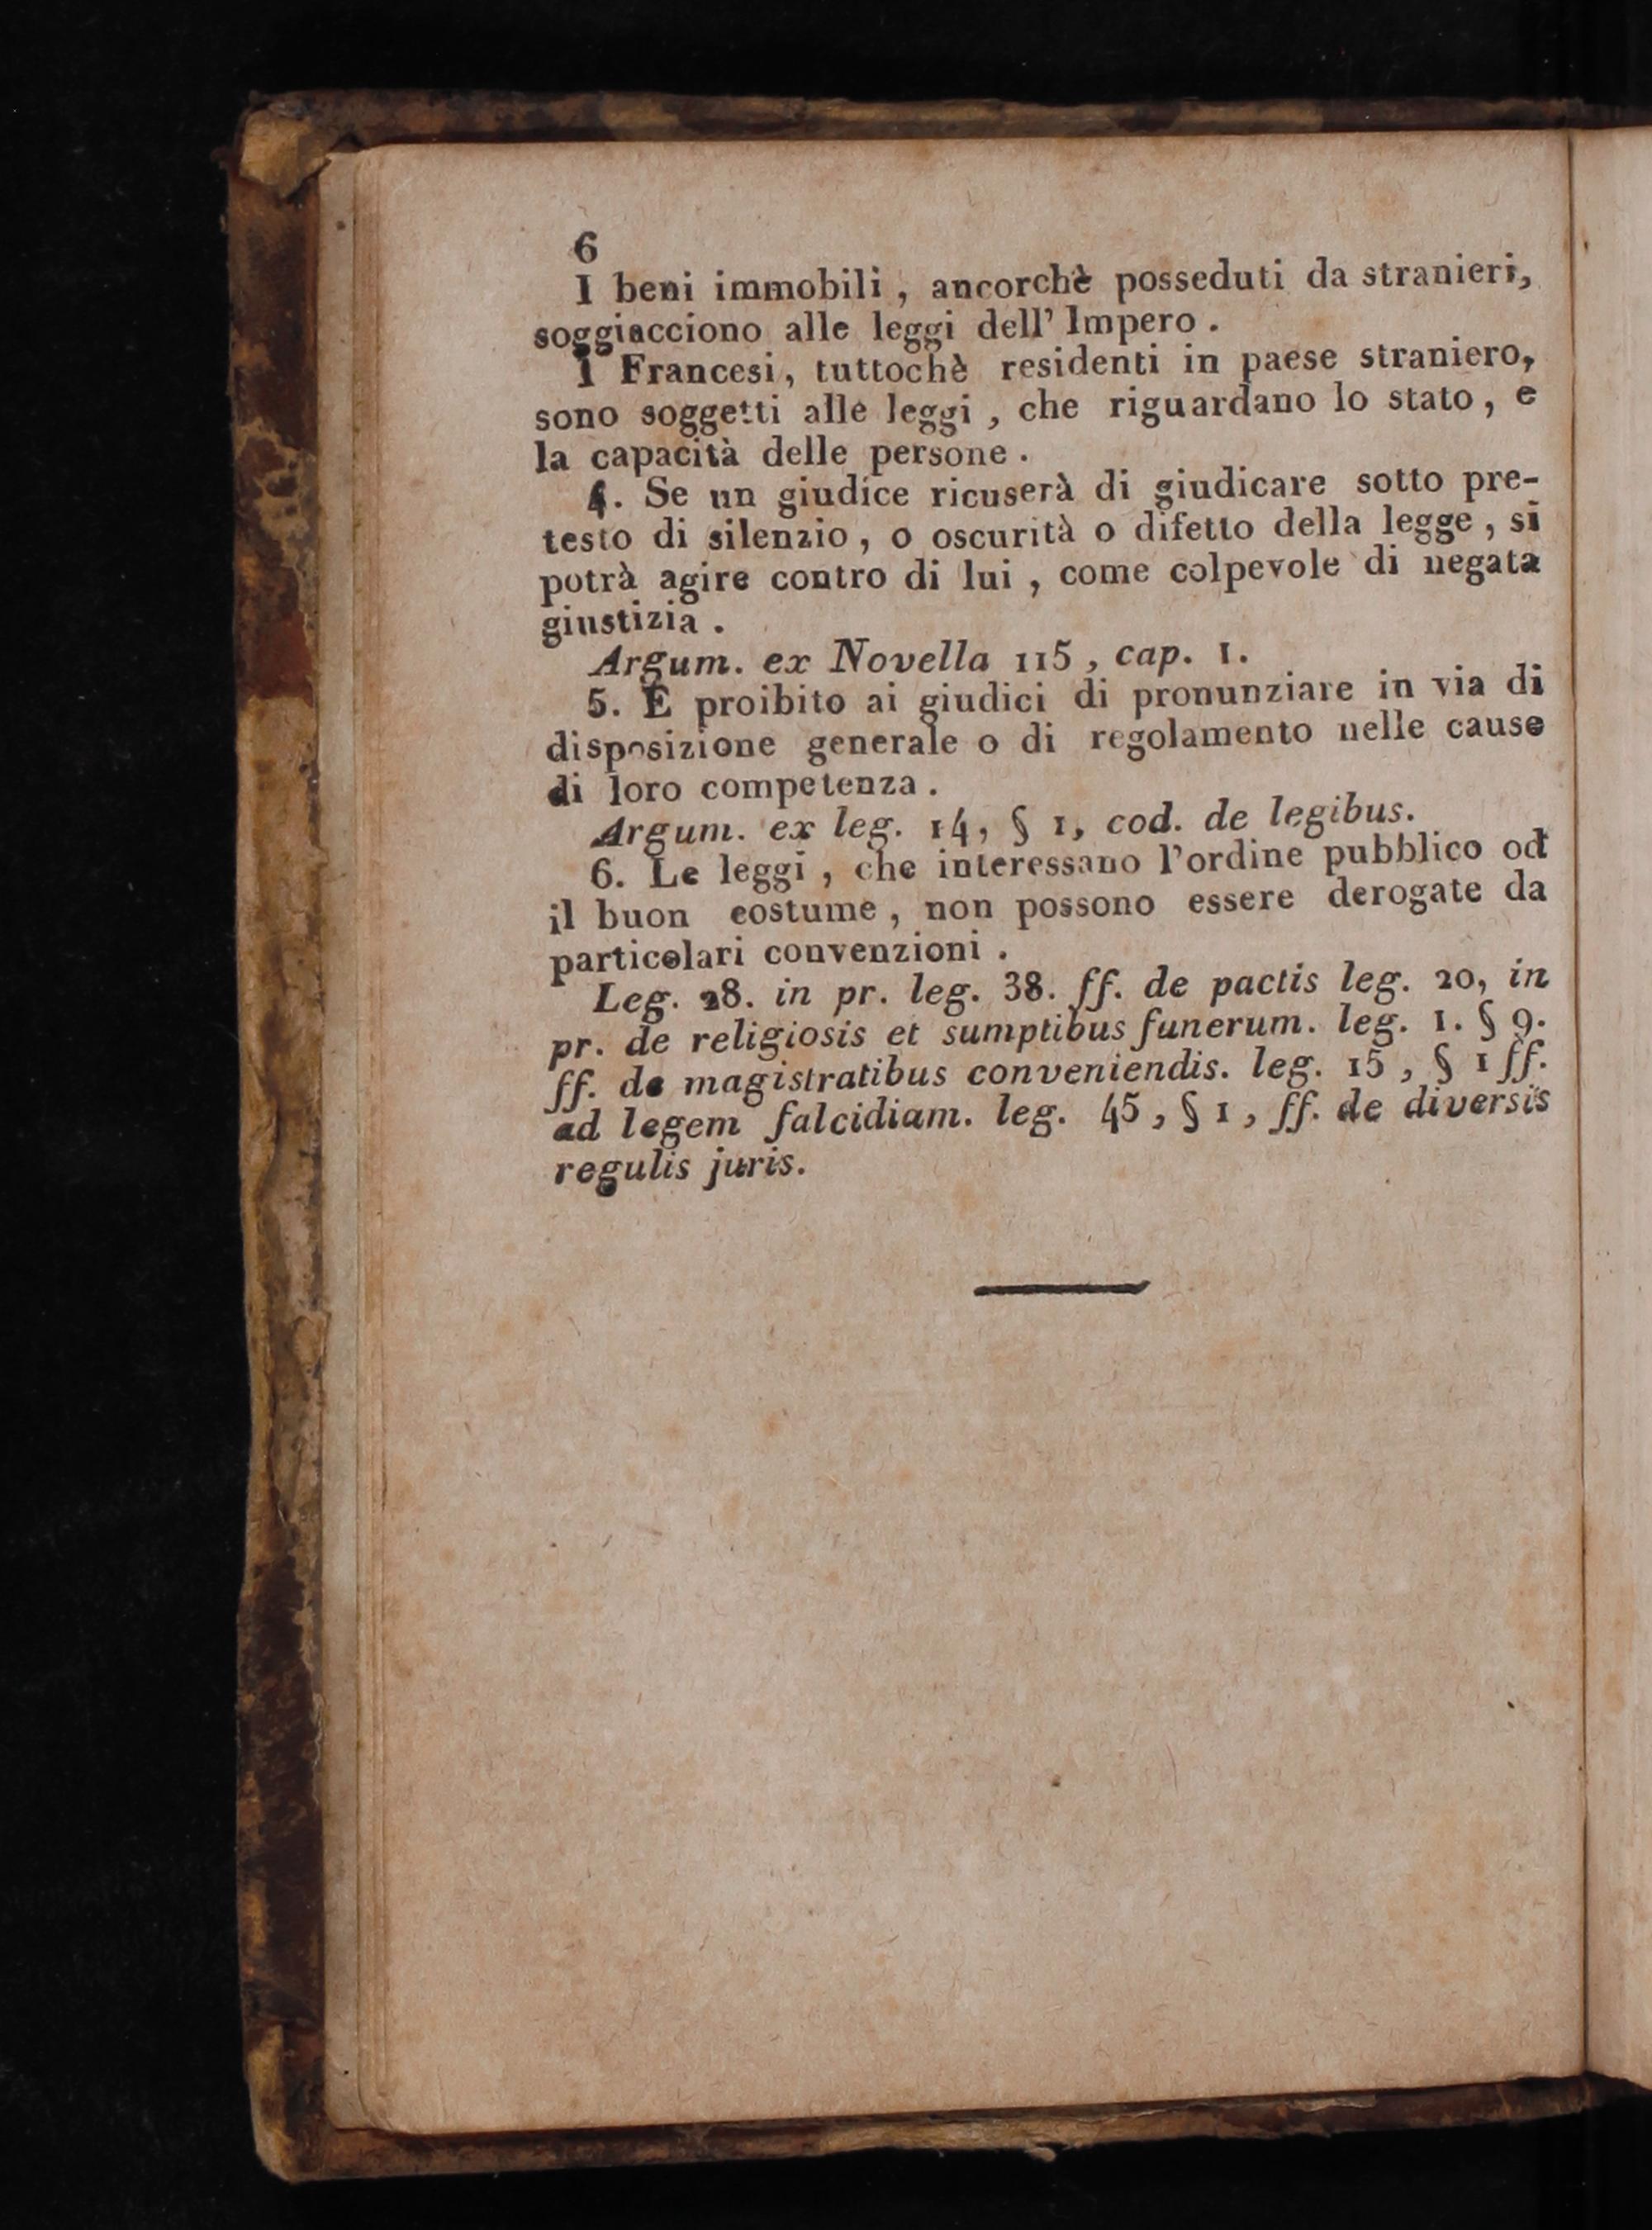 6
I beni immobili , ancorchè posseduti da stranieri,
soggiacciono alle leggi dell' Impero .
I Francesi, tuttochè residenti in paese straniero,
sono soggetti alle leggi , che riguardano lo stato , e
la capacità delle persone .
4. Se un giudice ricuserà di giudicare sotto pre-
testo di silenzio , o oscurità o difetto della legge , si
potrà agire contro di lui , come colpevole di negata
giustizia .
Argum. ex Novella 115 , cap. 1.
5. È proibito ai giudici di pronunziare in via di
disposizione generale o di regolamento nelle cause
di loro competenza .
Argum. ex leg. 14, § 1, cod. de legibus.
6. Le leggi , che interessano l'ordine pubblico od
il buon costume , non possono essere derogate da
particolari convenzioni .
Leg. 28. in pr. leg. 38. ff. de pactis leg. 20, in
pr. de religiosis et sumptibus funerum. leg. 1. § 9.
ff. de magistratibus conveniendis. leg. 15 , § 1 ff.
ad legem falcidiam. leg. 45 , § 1 , ff. de diversis
regulis juris.